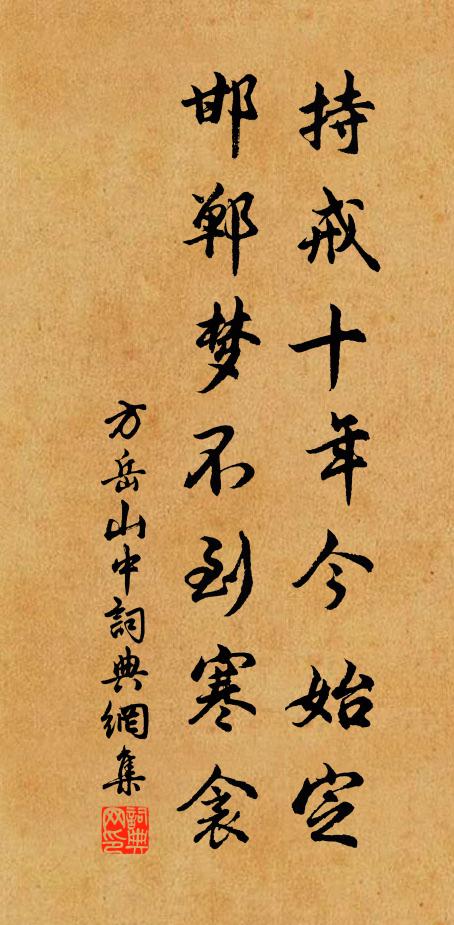 持戒十年今始定
邯郸梦不到寒衾
方岳山中詞典網集
詞典网印